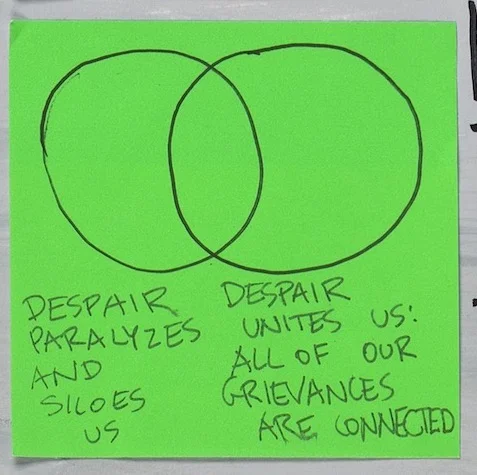 DESPAIR
PARALYZES
AND
SILOES
US
DESPAIR
UNITES US:
ALL OF OUR
GRIEVANCES
ARE CONNECTED